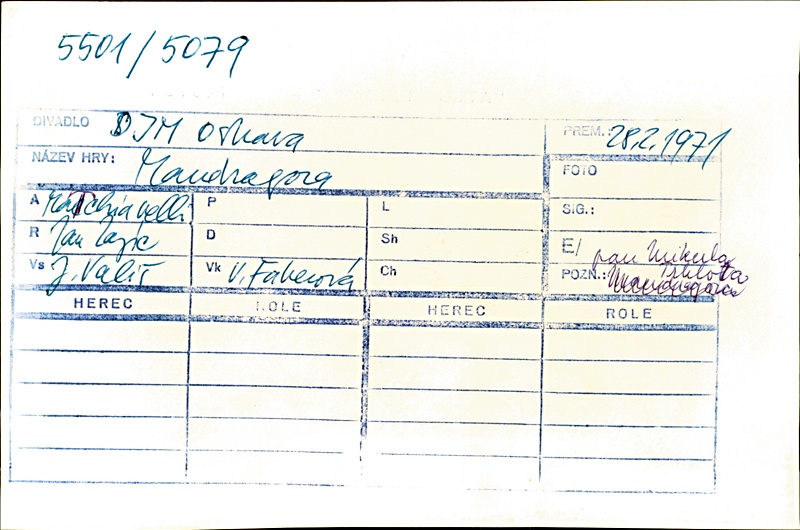 5501/5079
DIVADLO DJM Ostrava PREM.: 28.2.1971
NÁZEV HRY: Mandragora FOTO
A Matchiavelli P L SIG.:
R Jan Zajíc D Sh E/ pan Mikula
Vs J. Valíř Vk V. Faberová Ch POZN.: Mandragora
HEREC ROLE HEREC ROLE